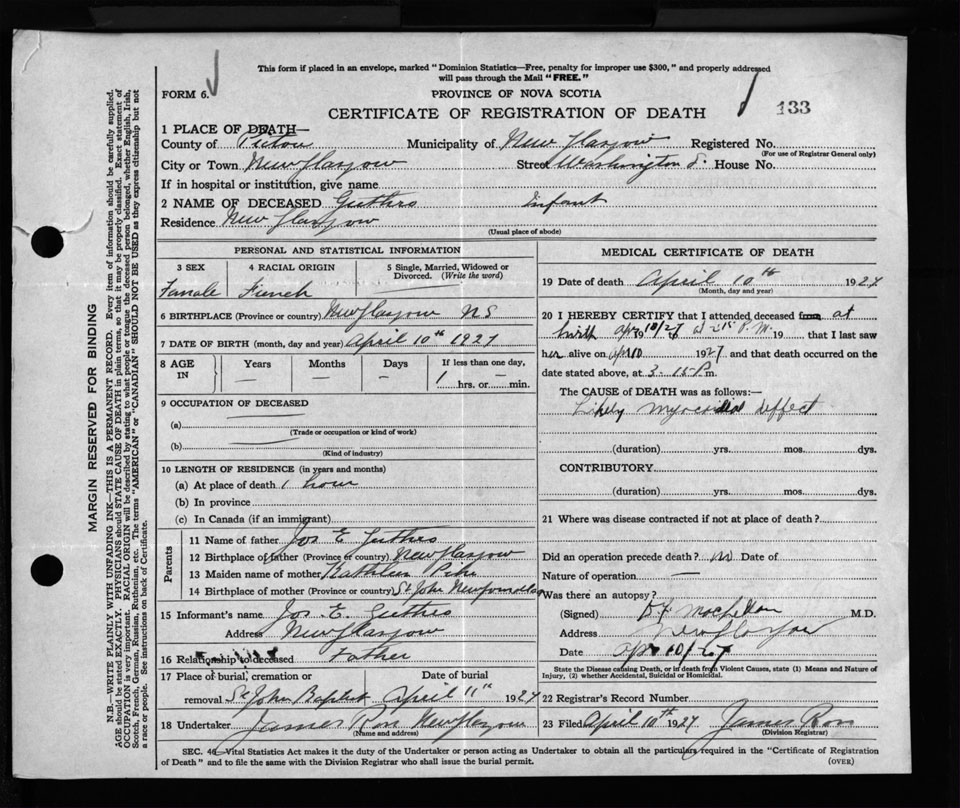 This form if placed in an envelope, marked "Dominion Statistics—Free, penalty for improper use $300," and properly addressed
will pass through the Mail "FREE."
FORM 6.
PROVINCE OF NOVA SCOTIA
CERTIFICATE OF REGISTRATION OF DEATH
133
1 PLACE OF DEATH—
County of Pictou Municipality of New Glasgow Registered No.
(For use of Registrar General only)
City or Town New Glasgow Street Washington St. House No.
If in hospital or institution, give name
2 NAME OF DECEASED Infant
Residence New Glasgow
(Usual place of abode)
PERSONAL AND STATISTICAL INFORMATION
3 SEX 4 RACIAL ORIGIN 5 Single, Married, Widowed or Divorced. (Write the word)
Famale French
6 BIRTHPLACE (Province or country) New Glasgow NS
7 DATE OF BIRTH (month, day and year) April 10th 1927
8 AGE IN Years Months Days If less than one day,
— — — 1 hrs. or — min.
9 OCCUPATION OF DECEASED
(a)
(Trade or occupation or kind of work)
(b)
(Kind of industry)
10 LENGTH OF RESIDENCE (in years and months)
(a) At place of death 1 hour
(b) In province
(c) In Canada (if an immigrant)
Parents
11 Name of father Jos E
12 Birthplace of father (Province or country) New Glasgow
13 Maiden name of mother Kathleen
14 Birthplace of mother (Province or country) St John Newfoundland
15 Informant's name Jos. E.
Address New Glasgow
16 Relationship to deceased Father
17 Place of burial, cremation or Date of burial
removal St John Baptist April 11th 1927
18 Undertaker James Ross New Glasgow
(Name and address)
MEDICAL CERTIFICATE OF DEATH
19 Date of death April 10th 1927
(Month, day and year)
20 I HEREBY CERTIFY that I attended deceased from at
birth Apr 10/27 at 2 15 P.M. 19 that I last saw
her alive on Apr 10 1927 and that death occurred on the
date stated above, at 3-15 P m.
The CAUSE of DEATH was as follows:—
Likely myocardial deffect
(duration) yrs. mos. dys.
CONTRIBUTORY
(duration) yrs. mos. dys.
21 Where was disease contracted if not at place of death?
Did an operation precede death? no Date of
Nature of operation —
Was there an autopsy?
(Signed) M.D.
Address New Glasgow
Date Apr 10/27
State the Disease causing Death, or in death from Violent Causes, state (1) Means and Nature of
Injury, (2) whether Accidental, Suicidal or Homicidal.
22 Registrar's Record Number
23 Filed April 10th 1927 James Ross
(Division Registrar)
SEC. 4 —Vital Statistics Act makes it the duty of the Undertaker or person acting as Undertaker to obtain all the particulars required in the "Certificate of Registration
of Death" and to file the same with the Division Registrar who shall issue the burial permit.
(OVER)
MARGIN RESERVED FOR BINDING
N.B.—WRITE PLAINLY WITH UNFADING INK—THIS IS A PERMANENT RECORD. Every item of information should be carefully supplied.
AGE should be stated EXACTLY. PHYSICIANS should STATE CAUSE OF DEATH in plain terms, so that it may be properly classified. Exact statement of
OCCUPATION is very important. RACIAL ORIGIN will be described by stating to what people or tongue the deceased person belonged, whether English, Irish,
Scotch, French, German, Russian, Ruthenian, etc. The terms "AMERICAN" or "CANADIAN" SHOULD NOT BE USED as they express citizenship but not
a race or people. See instructions on back of Certificate.